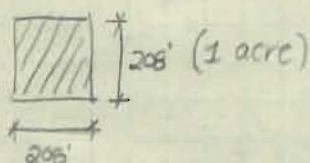 208' (1 acre)
208'